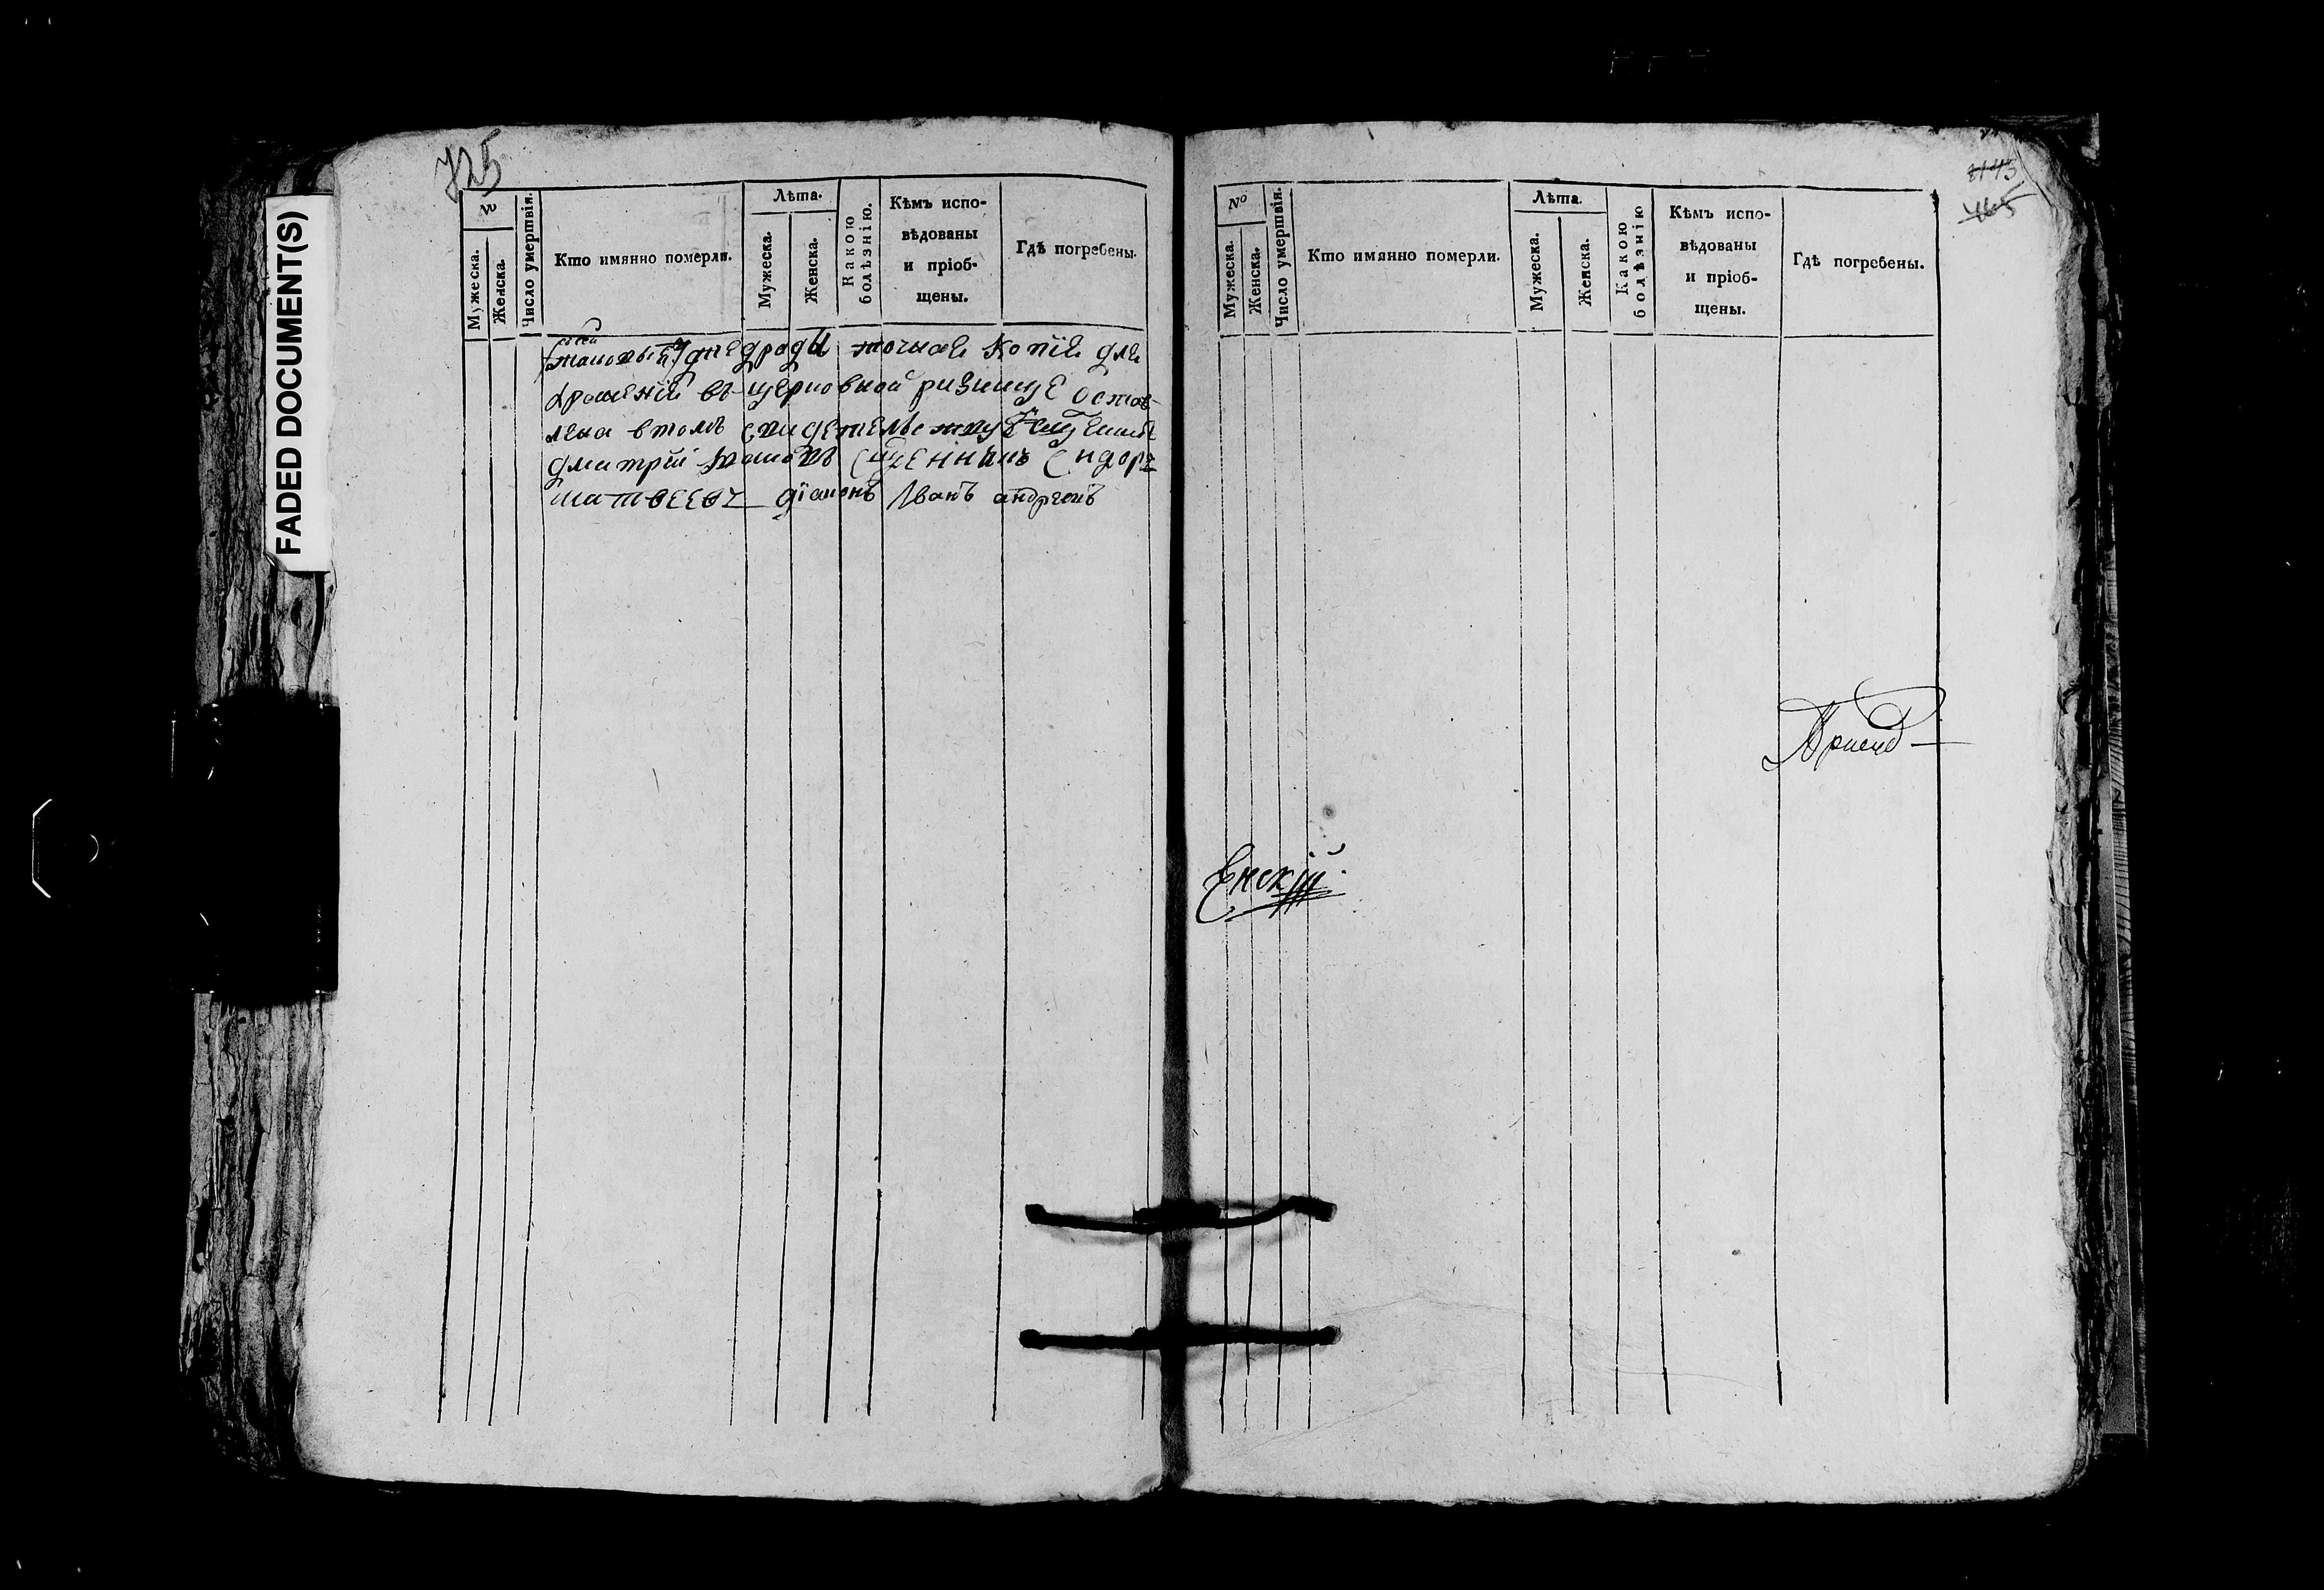 FADED DOCUMENT(S)
725
№
Мужеска.
Женска.
Число умертвія.
Кто имянно померли.
Лѣта.
Мужеска.
Женска.
Какою болѣзнію.
Кѣмъ испо-
вѣдованы
и пріоб-
щены.
Гдѣ погребены.
тетрады точная копія для
храненія въ церковной ризнице остав
лена втомъ свидетельствую
дмитрій Священникъ Сидоръ
матвеевъ діаконъ Иванъ андреевъ
465
№
Мужеска.
Женска.
Число умертвія.
Кто имянно померли.
Лѣта.
Мужеска.
Женска.
Какою болѣзнію
Кѣмъ испо-
вѣдованы
и пріоб-
щены.
Гдѣ погребены.
Енскій